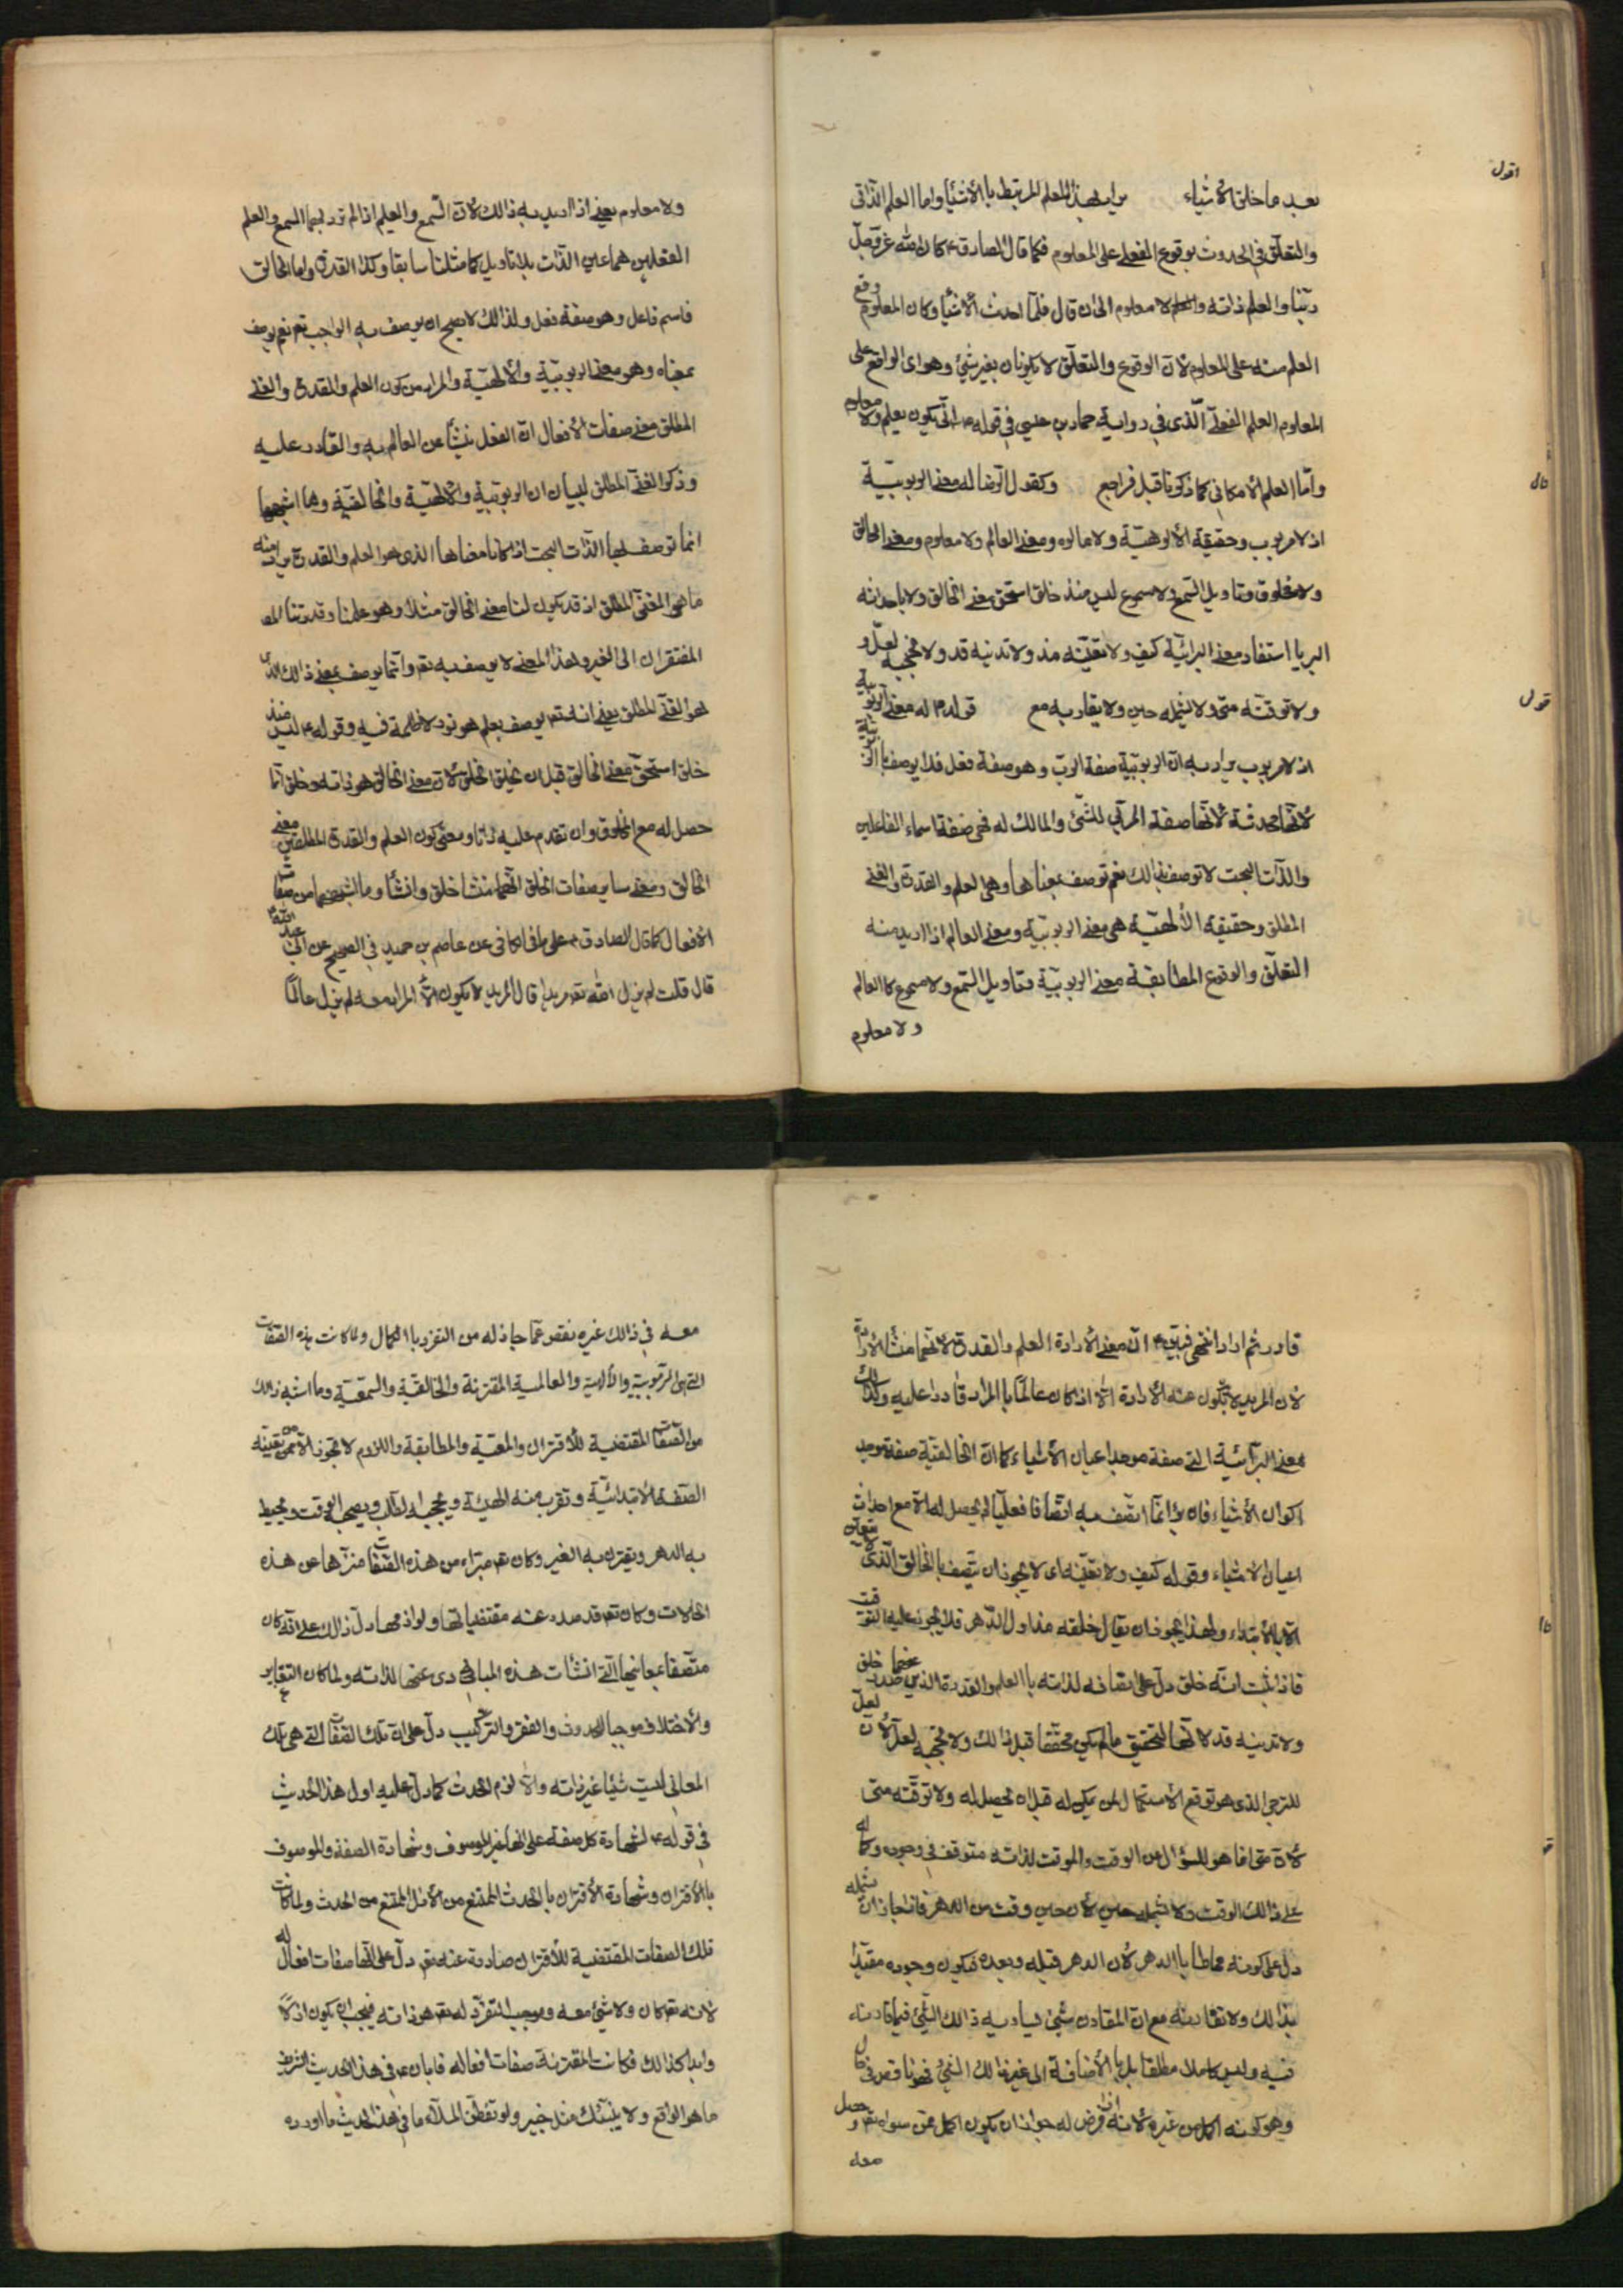 اقول
بعد ما خلق الأشياء يراد بهذا العلم المرتبط بالأشياء واما العلم الذاتي
والتعلق في الحدوث بوقوع الفعلي على المعلوم فكما قال الصادق ع كان الله عز وجل
ربنا والعلم ذاته والعلم لا معلوم الى ان قال فلما احدث الأشياء وكان المعلوم وقع
العلم منه على المعلوم لان الوقوع والتعلق لا يكونان بغير شيئ وهو اى الواقع على
المعلوم العلم الفعلي الذى في رواية حماد بن عيسى في قوله ع انى يكون يعلم ولا معلوم
واما العلم الأمكاني كما ذكرنا قبل فراجع وكقول الرضا له معنى الربوبية
قال
اذ لا مربوب وحقيقة الألوهية ولا مالوه ومعنى العالم ولا معلوم ومعنى الخالق
ولا مخلوق وتاويل السمع ولا مسموع ليس منذ خلق استحق معنى الخالق ولا باحداثه
البرايا استفاد معنى البرائية كيف ولا تغيبه مذ ولا تدنيه قد ولا تحجبه لعل و
ولا توقته متى ولا تشمله حين ولا يقاربه مع قوله ع له معنى الربوبية
قول
اذ لا مربوب يراد به ان الربوبية صفة الرب وهو صفة فعل فلا يوصف بها الذات
لأنها محدثة لأنها صفة المربي للشئ والمالك له فهى صفة اسماء الفاعلين
والذات البحت لا توصف بذالك نعم توصف بمعناها وهى العلم والقدرة والغنى
المطلق وحقيقة الألهية هى معنى الربوبية ومعنى العالم اذا اريد منه
التعلق والوقوع المطابقة معنى الربوبية وتاويل السمع ولا مسموع كالعالم
ولا معلوم
ولا معلوم يعنى اذا اريد به ذالك لان السمع والعلم اذا لم ترد بهما السمع والعلم
الفعليين هما عين الذات بلا تاويل كما مثلنا سابقا وكذا القدرة واما الخالق
فاسم فاعل وهو صفة فعل ولذالك لا يصح ان يوصف به الواجب تع نعم يوصف
بمعناه وهو معنى الربوبية والألهية والمراد من كون العلم والقدرة والغنى
المطلق معنى صفات الأفعال ان الفعل ينشأ عن العالم به والقادر عليه
وذكر الغنى المطلق لبيان ان الربوبية والألهية والخالقية وما اشبهها
انما توصف بها الذات البحت اذا كانا معناها الذى هو العلم والقدرة
ما هى الغنى المطلق اذ قد يكون لنا معنى الخالق مثلا وهو علمنا وقدرتنا
المفتقران الى الغير وهذا المعنى لا يوصف به تع وانما يوصف بمعنى ذالك الذى
هو الغنى المطلق يعنى انه تع يوصف بعلم هو نور لا ظلمة فيه وقوله ع ليس منذ
خلق استحق معنى الخالق قبل ان يخلق الخلق لان معنى الخالق هو ذاته وخلق انما
حصل له مع المخلوق وان تقدم عليه ذاتا ومعنى كون العلم والقدرة المطلقين معنى
الخالق ومعنى ساير صفات الخلق انهما منشأ خلق وانشأ وما اشبههما من صفات
الأفعال كما قال الصادق ع على ما في الكافي عن عاصم بن حميد في الصحيح عن ابي عبد الله ع
قال قلت لم يزل الله تع مريدا قال المريد لا يكون الا المراد معه لم يزل عالما
قادرا ثم اراد انتهى فبين ع ان معنى الأرادة العلم والقدرة لانهما منشأ الأرادة
لان المريد لا يكون عنه الأرادة الا اذا كان عالما با المراد قادرا عليه وكذالك
معنى البرائية التى صفة موجد اعيان الأشياء كما ان الخالقية صفة موجد
اكوان الأشياء فان برأ انما اتصف به اتصافا فعليا لم يحصل له الا مع احداث
اعيان الأشياء وقوله كيف ولا تغيبه اى لا يجوز ان يتصف با الخالق الذى
الا با الأبتداء ولهذا يجوز ان يقال خلقه مذ اول الدهر فلا يجوز عليه التوقيت
فاذا ثبت انه خلق دل على اتصافه لذاته با العلم والقدرة الذين صدر عنهما خلق
ولا تدنيه قد لانها لتحقيق ما لم يكن محققا قبل ذالك ولا تحجبه لعل لان لعل
للترجى الذى هو توقع الأستكمال لمن يكن له قبل ان يحصل له ولا توقته متى
لان متى انما هو للسؤال عن الوقت والموقت لذاته متوقف في وجوده وكماله
على ذالك الوقت ولا تشمله حين لان حين وقت من الدهر فاذا جاز ان تشمله
دل على كونه محاطا با الدهر لان الدهر قبله وبعده فيكون وجوده مقيدا
بذالك ولا تقارنه مع ان المقارن شيئ يساويه ذالك الشئ فيما قارنه
فيه وليس كاملا مطلقا بل با الأضافة الى غير ذالك الشئ فهو ناقص في كمال
وهو كونه اكمل من غيره لانه ان فرض له جواز ان يكون اكمل ممن سواه تع وحصل
معه
معه في ذالك غيره نقص عما جاز له من التفرد با الكمال ولما كانت هذه الصفات
التى هى الربوبية والألهية والعالمية المقترنة والخالقية والسمعية وما اشبه ذالك
من الصفات المقتضية للأقتران والمعية والمطابقة واللزوم لا تجوز الا ممن تغيبه
الصفة الأبتدائية وتقرب منه الهيئة ويحجبه الطلب ويصحب الوقت ويحيط
به الدهر ويقترن به الغير وكان تع مبراء من هذه الصفات منزها عن هذه
الحالات وكان تع قد صدر عنه مقتضياتها ولوازمها دل ذالك على انه كان
متصفا بمعانيها التى انشأت هذه المبادى عنها لذاته ولما كان التغاير
والأختلاف موجبا للحدوث والفقر والتركيب دل على ان تلك الصفات التى هى تلك
المعانى ليست شيئا غير ذاته والا لزم الحدث كما دل عليه اول هذا الحديث
في قوله ع لشهادة كل صفة على انها غير الموصوف وشهادة الصفة والموصوف
با الأقتران وشهادة الأقتران با الحدث الممتنع من الأزل الممتنع من الحدث ولما كانت
تلك الصفات المقتضية للأقتران صادرة عنه تع دل على انها صفات افعاله
لانه تع كان ولا شئ معه وموجب التفرد له تع هو ذاته فيجب ان يكون ازلا
وابدا كذالك فكانت المقترنة صفات افعاله فابان ع في هذا الحديث الشريف
ما هو الواقع ولا ينبئك مثل خبير ولو تفطن الملا له ما في هذا الحديث ما اورده